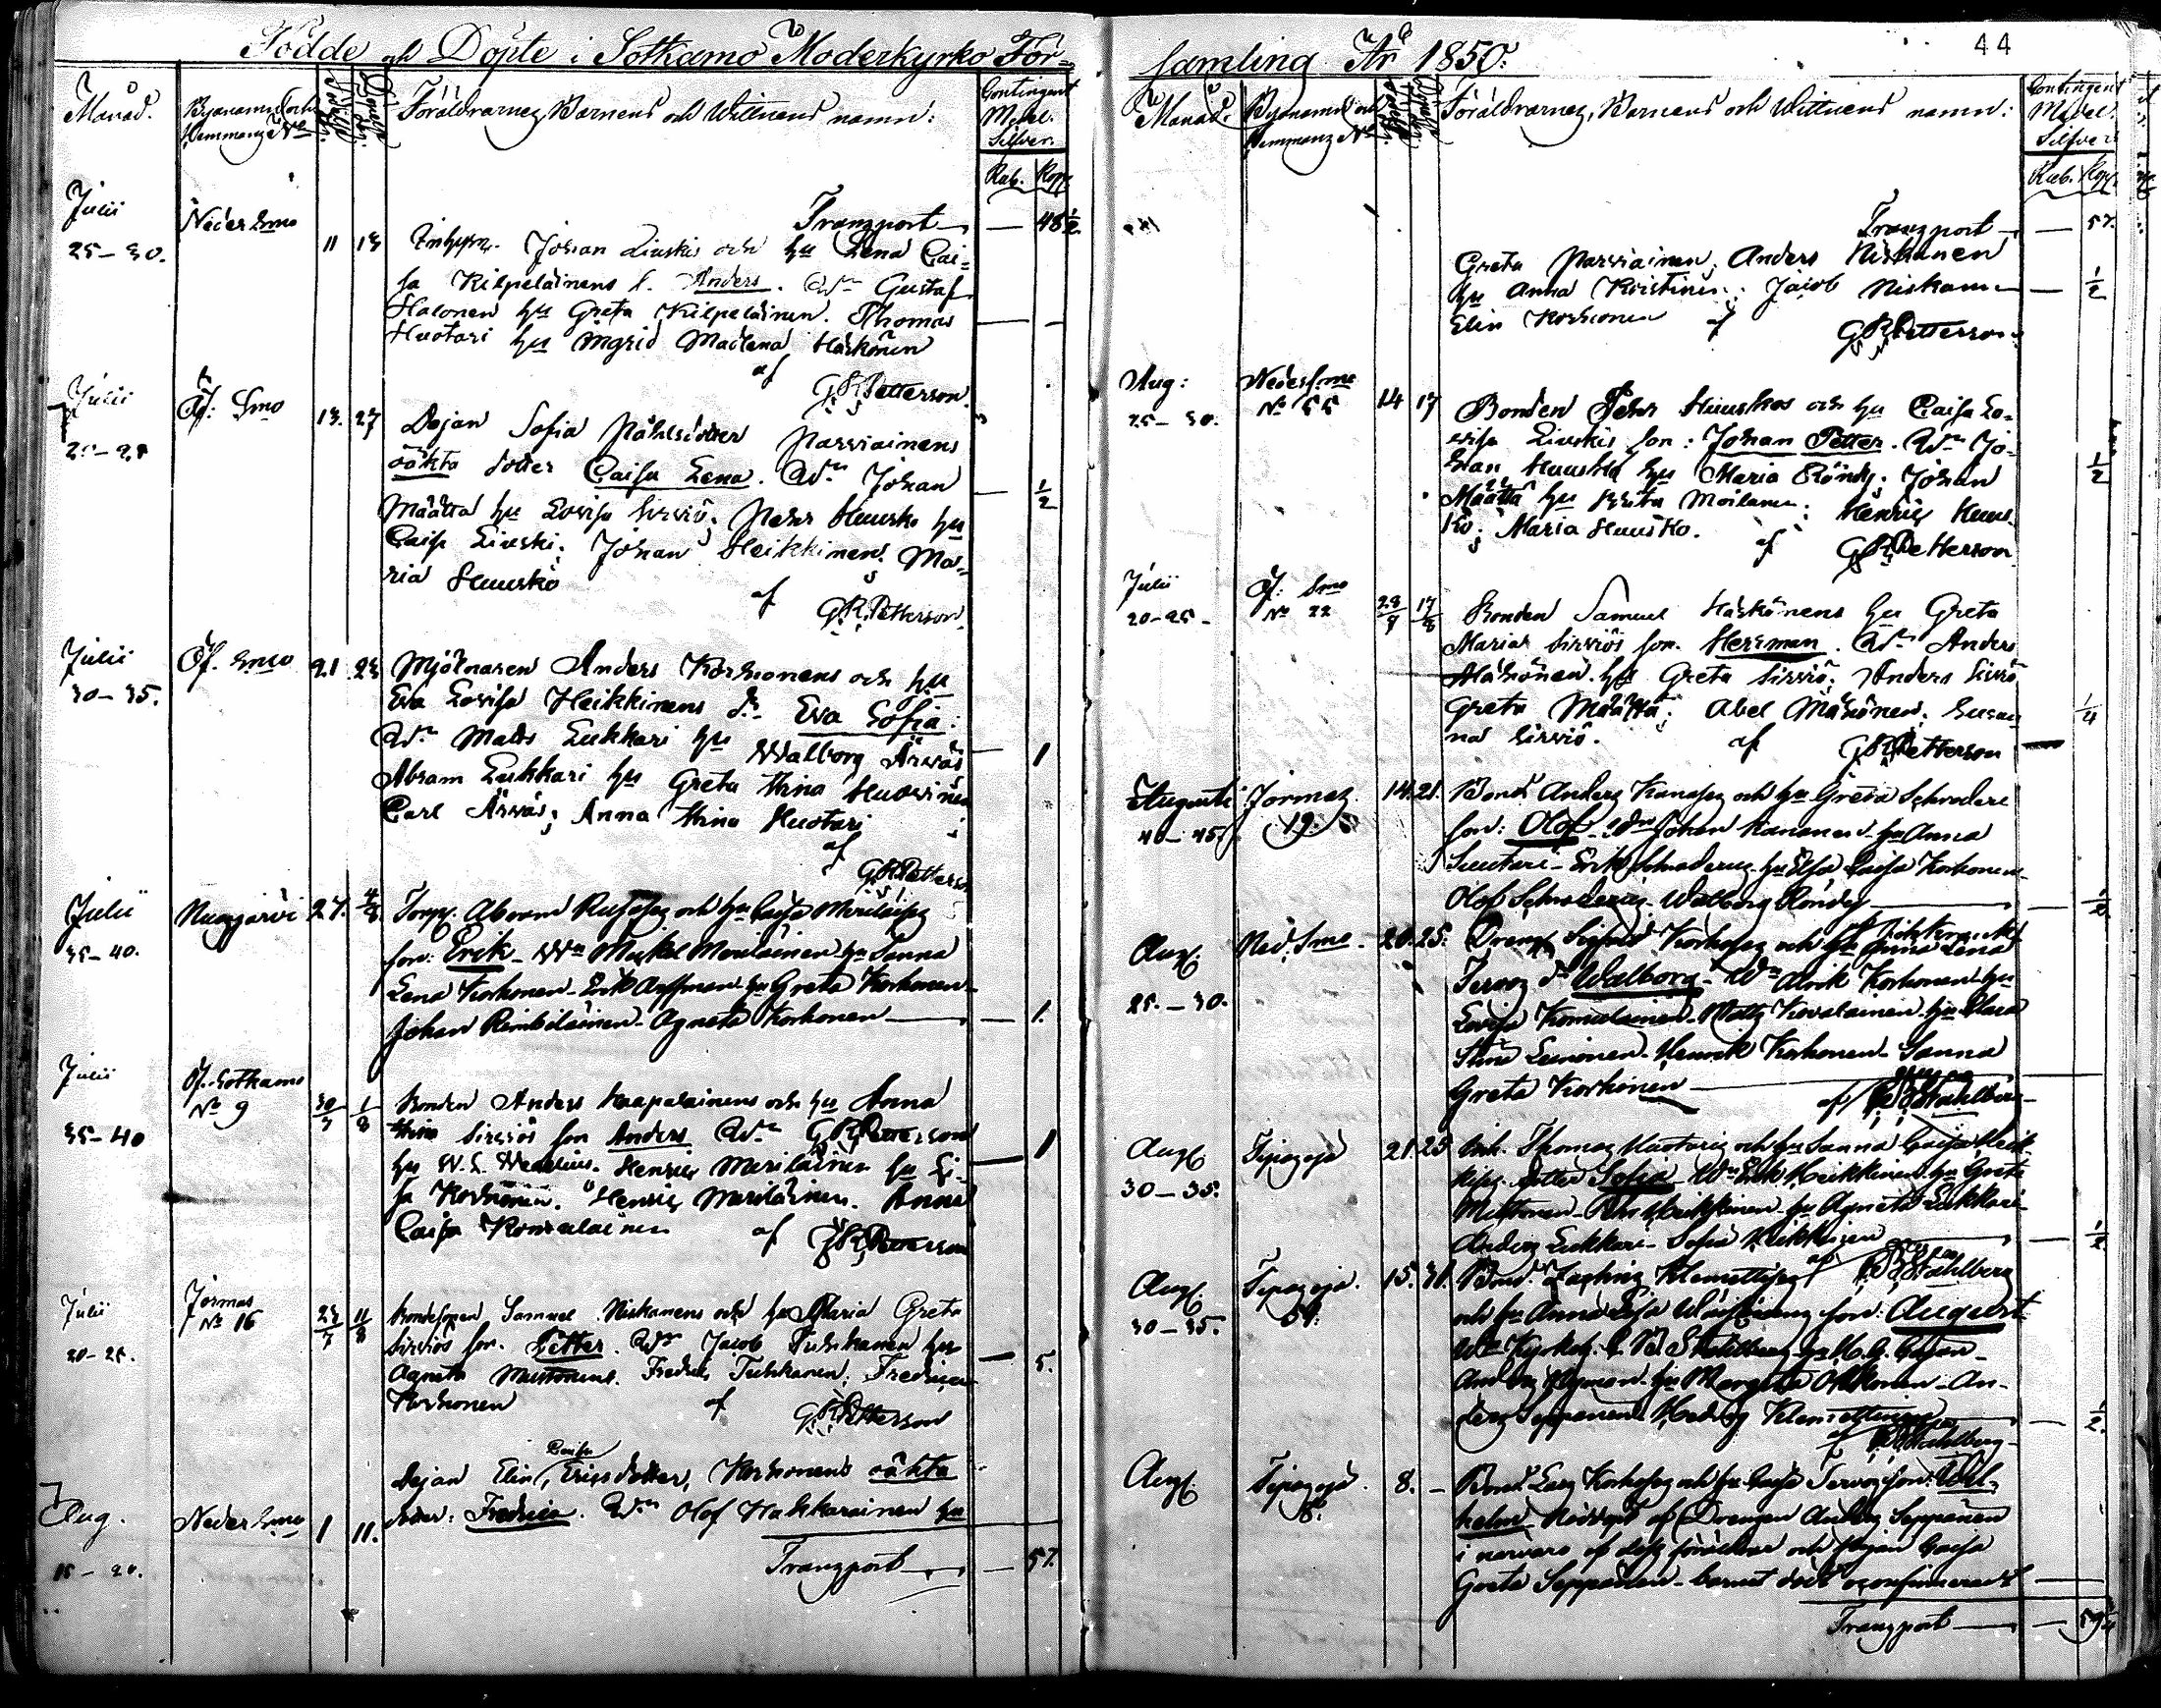 Födde och Döpte i Sotkamo Moderkyrko För-
Månad.
Byanamn och Hemmans No
Föräldrarnes, Barnens och Wittnens namn:
Contingent
Medel.
Silfver.
Rub. Kop.
Transport — 48 1/2
Julii
25-30.
Neder Smo
11 13
Inhys. Johan Liuskis och hu Lena Cai-
sa Kilpeläinens s. Anders. Wn Gustaf
Halonen hu Greta Kilpeläinen. Thomas
Huotari hu Ingrid Madlena Härkönen
af
G.R. Petterson.
Julii
Öf: Smo
13. 27
Dejan Sofia Påhlsdotter Parviainens
oäkta dotter Caisa Lena. Wn Johan
Määttä hu Lovisa Sirviö; Pehr Huusko hu
Caisa Liuski; Johan Heikkinen; Ma-
ria Huusko
af
G.R. Petterson.
1/2
Julii
30-35.
Öf. Smo
21 23
Mjölnaren Anders Korhonens och hu
Eva Lovisa Heikkinens dr Eva Sofia:
Wn Matts Lukkari hu Walborg Ärväs
Abram Lukkari hu Greta Stina Huovinen
Carl Ärväs; Anna Stina Huotari
af
G.R. Petterson
1
Julii
35-40.
Nuasjärvi
27. 4/8
Torp. Abram
son: Erik - Wn Mickel Meriläinen hu Sanna
Lena Korhonen - Erik Auffman hu Greta Korhonen
Johan Rimbiläinen - Agneta Korhonen — 1.
Julii
35-40
Öf. Sotkamo
No 9
30/7 1/8
Bonden Anders Haapalainens och hu Anna
Stina Sirviös son Anders Wn G.R. Petterson
hu W.L. Henric Meriläinen hu Li-
sa Korhonen. Henric Meriläinen. Anna
Caisa Komulainen af G.R. Petterson
1
Julii
20-25.
Jormas
No 16
23/7 11/8
Bondesonen Samuel Niskanens och hu Maria Greta
Sirviös son. Petter. Wn Jacob Tuhkanen hu
Agneta Mustonens. Fredric Tuhkanen; Fredrica
Korhonen af G.R. Petterson
5.
Aug.
15-20.
Neder Smo
1 11.
Dejan Elin Caisa Ericsdotter, Korhonens oäkta
dotter: Fredrica. Wn Olof Hakkarainen hu
Transport — 57.
samling År 1850.
44
Månad.
Byanamn och Hemmans No
Föräldrarnes, Barnens och Wittnens namn:
Contingent
Medel.
Silfver
Rub. Kop.
Transport — 57.
Greta Parviainen; Anders Niskanen
hu Anna Kristina; Jacob Niskanen — 1/2
Elin Korhonen af G.R. Petterson
Aug:
25-30.
Neder Smo
No 55
14 17
Bonden Pehr Huuskos och hu Caisa Lo-
visa Liuskis son: Johan Petter. Wn Jo-
han Huusko hu Maria Röndy; Johan
Määttä hu Brita Moilanen; Henric Huus-
ko; Maria Huusko. af G.R. Petterson
1/2
Julii
20-25-
Öf: Smo
No 22
23/7 17/8
Bonden Samuel Härkönens hu Greta
Marias Sirviös son. Herrman. Wn Anders
Mähönen. hu Greta Sirviö; Anders Sirviö
Greta Määttä; Abel Mähönen; Susan
na Sirviö. af G.R. Petterson
1/4
Augusti
40-45
Jormas
19.
14. 21.
Bond. Anders Kanases och hu Greta Schroderi
son: Olof - Wn Johan Kananen hu Anna
Suutari - Erik Schroderus hu Elsa Caisa Korhonen
Olof Schroderus - Walborg Röndy — 1/2
Aug.
25-30.
Ned. Smo
20. 25.
Dreng Sigfrid Korhoses och hu Anna Lena
Tervos dr Walborg - Wn Alrik Korhonen hu
Lovisa Komulainen - Matts Kovalainen hu Clara
Stina Leinonen - Henrik Korhonen - Sanna
Greta Korhonen
af Stahlberg
Aug.
30-35.
Tipasoja
21 25
Inh. Thomas Huotaris och hu Sanna Caisa Heik-
kises dotter Sofia - Wn Erik Heikkinen hu Greta
Mittonen - Pehr Heikkinen hu Agneta Lukkari
Anders Lukkari - Sofia Heikkinen — 1/2
af Stahlberg
Aug.
30-35.
Tipasoja.
15. 31.
Bond. Zachris Klemettises
och hu Anna Lisa Wäisänens son: August
Wn Stahlberg hu
Anders hu Margeta Okkonen - An-
ders Seppänen - Hedvig Klemettinen — 1/2
af Stahlberg
Aug.
Tipasoja.
8.
8. -
Bond. Lars Korhoses och hu Caisa Tervos son: Wil-
helm Nöddöpt af Drengen Anders Seppänen
i närvaro af dess föräldrar och Pigan Caisa
Greta Seppänen - barnet dödt oconfirmeradt
Transport — 59